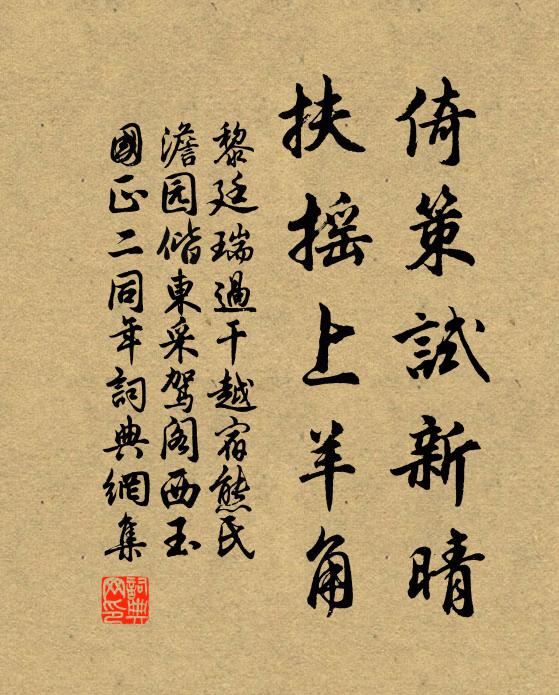 倚策試新晴
扶摇上羊角
黎廷瑞過干越宿熊氏
澹园偕東采驾阁西玉
國正二同年詞典網集
詞典网印